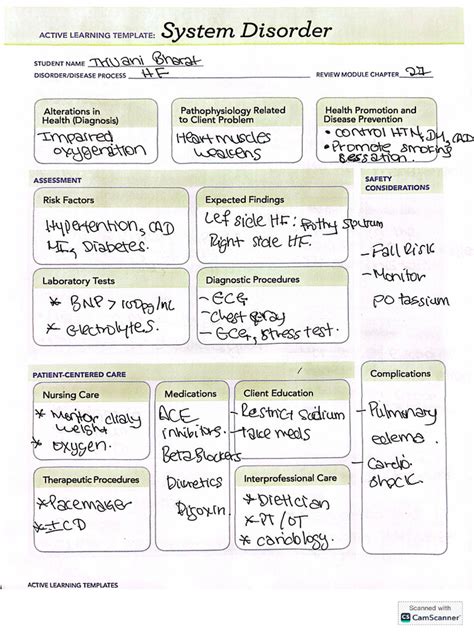 ACTIVE LEARNING TEMPLATE: System Disorder
STUDENT NAME Thvani Bharat
DISORDER/DISEASE PROCESS HF
REVIEW MODULE CHAPTER 27
Alterations in
Health (Diagnosis)
Impaired
oxygenation
Pathophysiology Related
to Client Problem
Heart muscles
weakens
Health Promotion and
Disease Prevention
• control HTN, DM, CAD
• Promote smoking
sessation.
ASSESSMENT
SAFETY
CONSIDERATIONS
Risk Factors
Hypertention, CAD
MI, Diabetes.
Expected Findings
Lef side HF: Frothy Sputum
Right side HF.
- Fall Risk
- Monitor
potassium
Laboratory Tests
* BNP > 100pg/mL
* Electrolytes.
Diagnostic Procedures
- ECG
- Chest xray
- ECG, stress test.
PATIENT-CENTERED CARE
Complications
Nursing Care
* Monitor daily
weight
* oxygen.
Medications
ACE
inhibitors.
Beta Blockers
Diuretics
Digoxin.
Client Education
- Restrict Sodium
- take meds
- Pulmonary
edema
- Cardio
shock
Therapeutic Procedures
* Pacemaker
* ICD
Interprofessional Care
* Dietician
* PT / OT
* cardiology.
ACTIVE LEARNING TEMPLATES
Scanned with
CS CamScanner